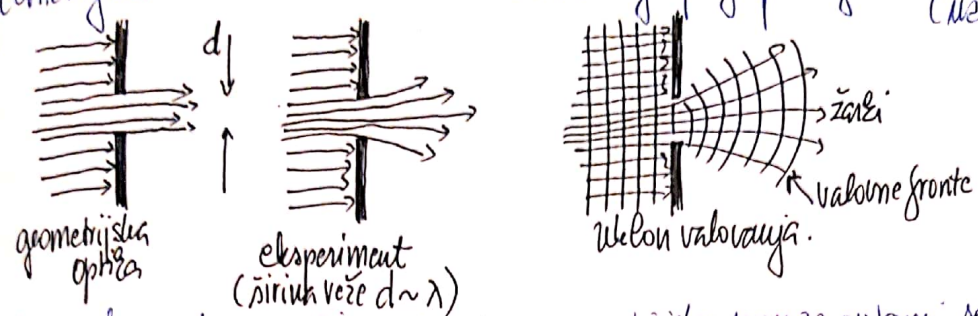 d
geometrijska
optika
eksperiment
(širina reže d ~ λ)
žarki
valovne fronte
Uklon valovanja.